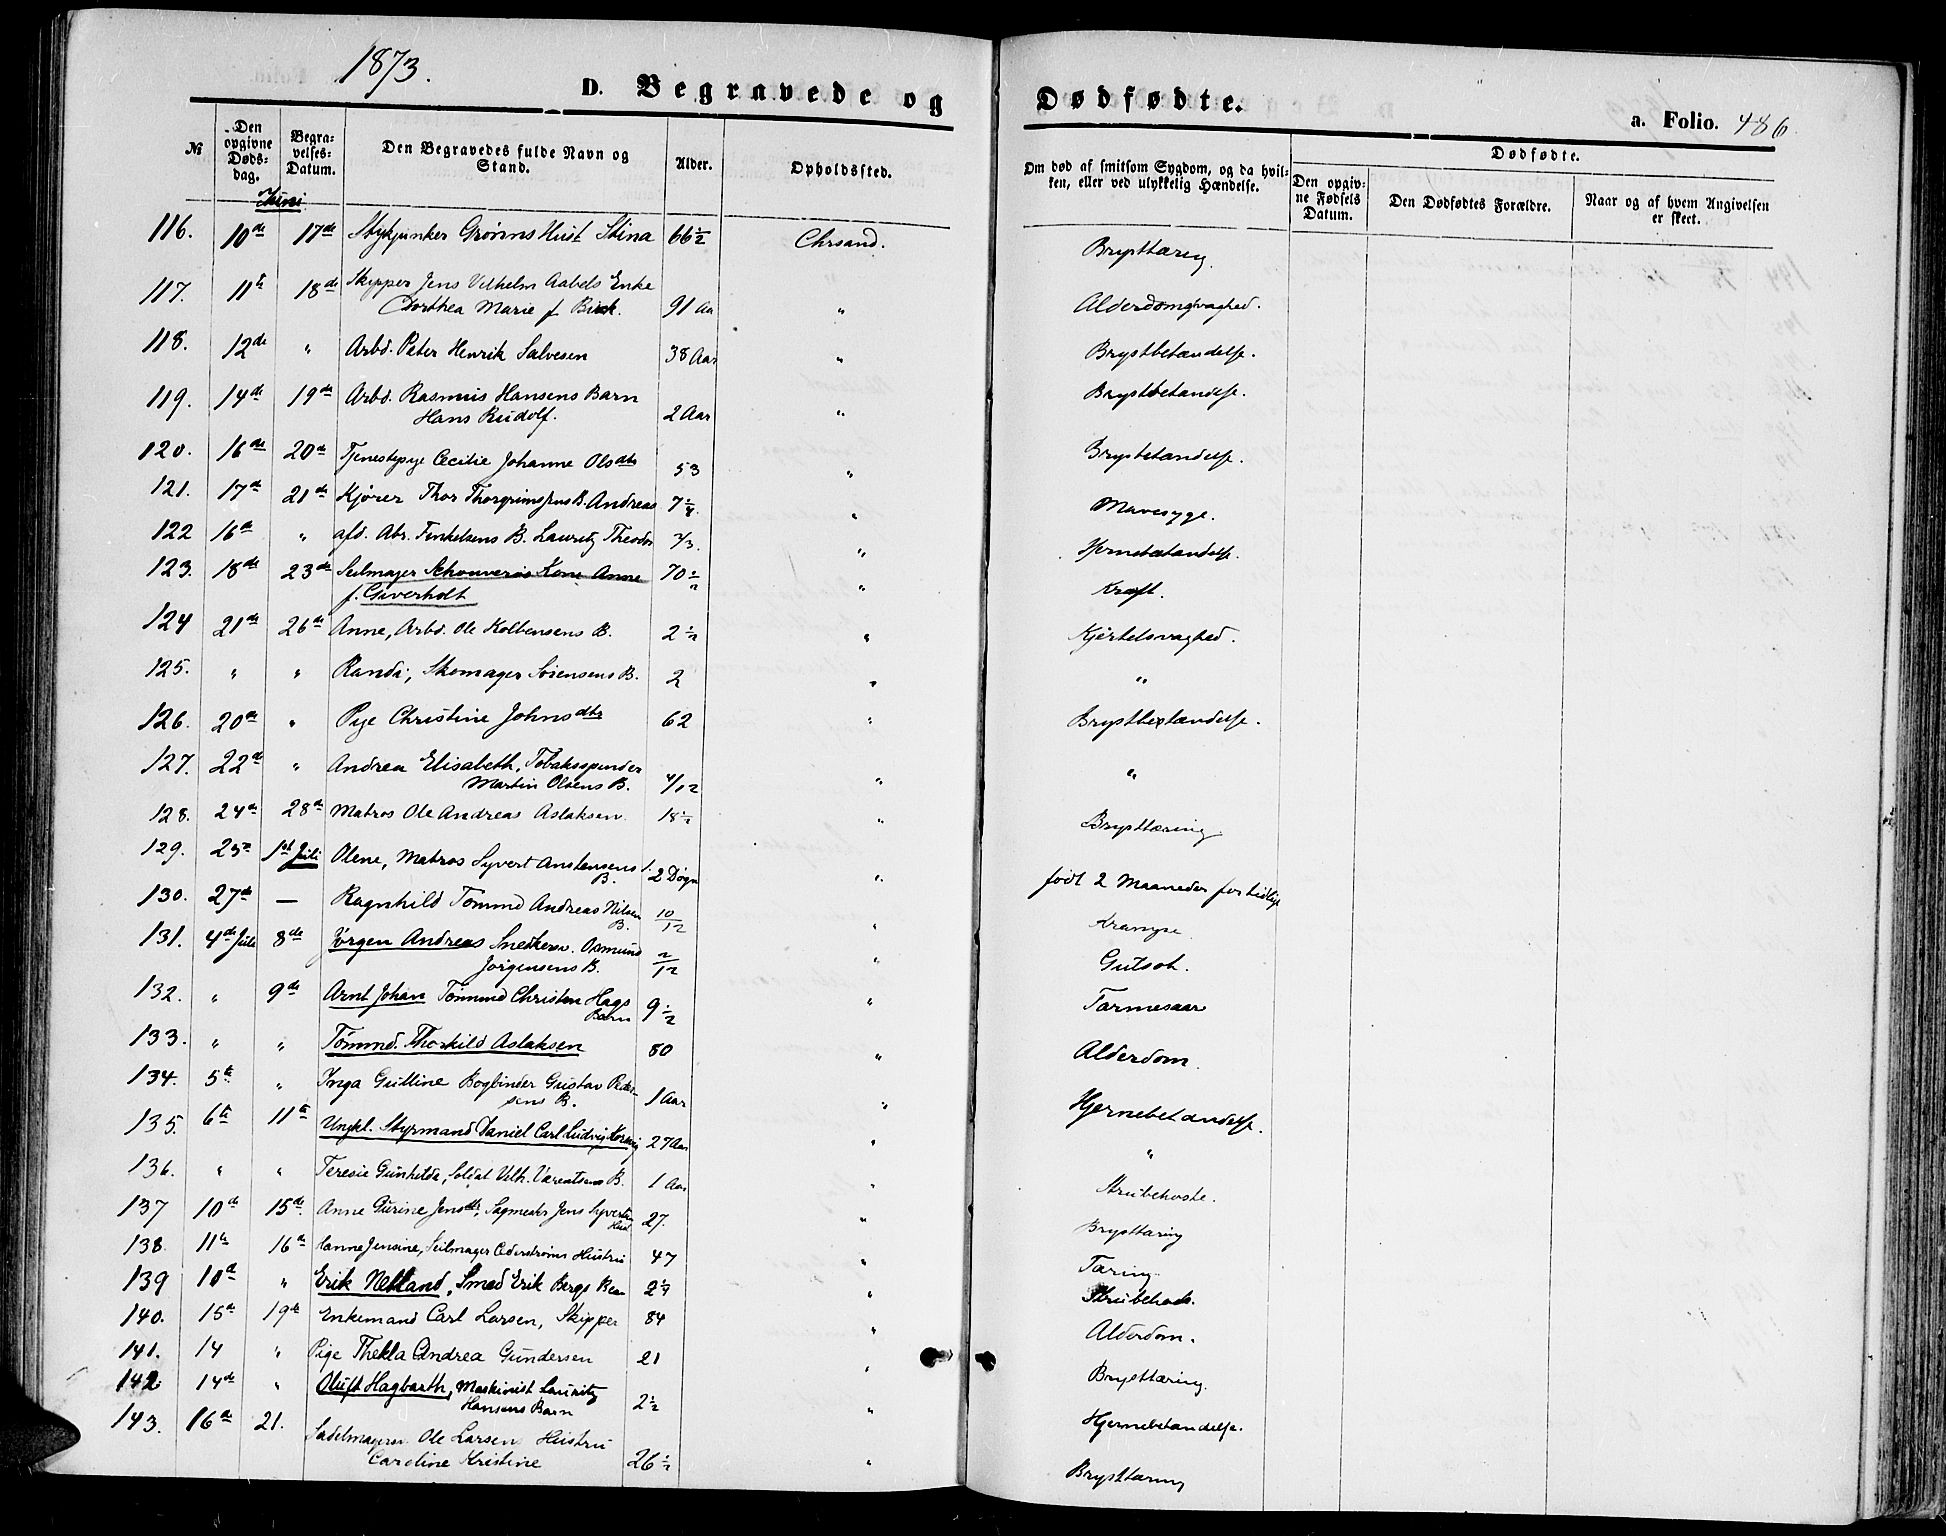 1873.
D. Begravede og
Dødfødte.
a. Folio. 486.
№
Den opgivne Døds-dag.
Begra-velses-Datum.
Den Begravedes fulde Navn og Stand.
Alder.
Opholdssted.
Om død af smitsom Sygdom, og da hvil-ken, eller ved ulykkelig Hændelse.
Dødfødte.
Den opgiv-ne Fødsels Datum.
Den Dødfødtes Forældre.
Naar og af hvem Angivelsen er skeet.
Juni
116. 10de 17de Stykjunker Grønns Hust Stina 66½ Chrsand. Brysttæring
117. 11te 18de Skipper Jens Vilhelm Aabels Enke
Dorthea Marie f. Birk. 91 Aa " Alderdomsvaghed.
118. 12de " Arbd. Peter Henrik Salvesen 38 Aar " Brystbetændelse.
119. 14de 19de Arbd. Rasmus Hansens Barn
Hans Rudolf. 2 Aar " Brystbetændelse.
120. 16de 20de Tjenestepige Cecilie Johanne Olsdtr 53 " Brystbetændelse.
121. 17de 21de Kjører Thor Thorgrimsens B. Andreas 7¼ " Mavesyge.
122 16de " afd. Abr. Finkelsens B. Lauritz Theodor " Hjernebetændelse.
123. 18de 23de Seilmager Schouverøs Kone Anne 70½
f. Giverholt " Kræft.
124 21de 26de Anne, Arbd. Ole Kolbensens B. 2½ " Kjertelsvaghed.
125. " " Randi, Skomager Sørensens B. 2 " "
126. 20de " Pige Christine Johnsdtr 62 " Brystbetændelse.
127. 22de " Andrea Elisabeth, Tobaksspinder
Martin Olsens B. 4/12 " "
128. 24de 28de Matros Ole Andreas Aslaksen 18½ " Brysttæring
129. 25de 1ste Juli Olene, Matros Syvert Anstensens
B. 2 Døgn " født 2 Maaneder for tidlig
130. 27de — Ragnhild Tømmd Andreas Nilsen
B. 10/12 " Krampe
131. 4de Juli 8de Jørgen Andreas Snedkersv. Osmund
Jørgensens B. 2/12 " Gulsot.
132. " 9de Arnt Johan Tømmd Christen Hags
Barn 9½ " Tarmesaar
133. " " Tømmd. Thorkild Aslaksen 80 " Alderdom.
134. 5te " Inga Guttine Bogbinder Gustav Peder-
sens B. 1 Aar " Hjernebetændelse.
135. 6te 11te Ungkl. Styrmand Daniel Carl Ludvig 27 Aar " "
136. " " Teresie Gunhilde, Soldat Vilh. B. 1 Aar " Strubehoste.
137 10de 15de Anne Gurine Jensdtr, Sagmester Jens Syvertsen
Hust. 27. " Brysttæring
138. 11te 16de Hanne Jensine, Seilmager Cederstrøms Hustru 47 " Tæring.
139 10de " Erik Netland, Smed Erik Bergs Barn 2¼ " Strubehoste.
140. 15de 19de Enkemand Carl Larsen, Skipper 84 " Alderdom.
141. 14 " Pige Thekla Andrea Gundersen 21 " Brysttæring.
142. 14de " Oluft Hagbarth, Maskinist Lauritz
Hansens Barn 2½ " Hjernebetændelse.
143. 16de 21. Sadelmagersv. Ole Larsens Hustru
Caroline Kristine 26½ " Brysttæring